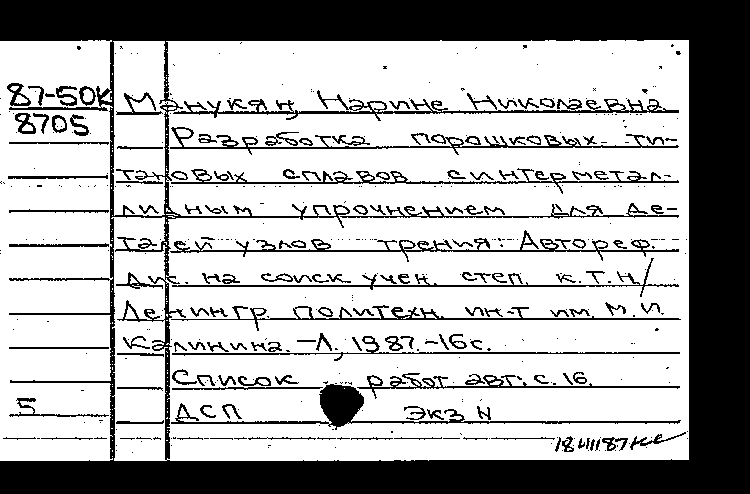 87-50К Манукян, Нарине Николаевна
8705 Разработка порошковых ти-
тановых сплавов с интерметал-
лидным упрочнением для де-
талей узлов трения: Автореф.
дис. на соиск. учен. степ. к.т.н/
Ленингр. политехн. ин-т им. М.И.
Калинина. -Л., 1987.-16с.
Список работ авт.: с. 16.
5 ДСП Экз N